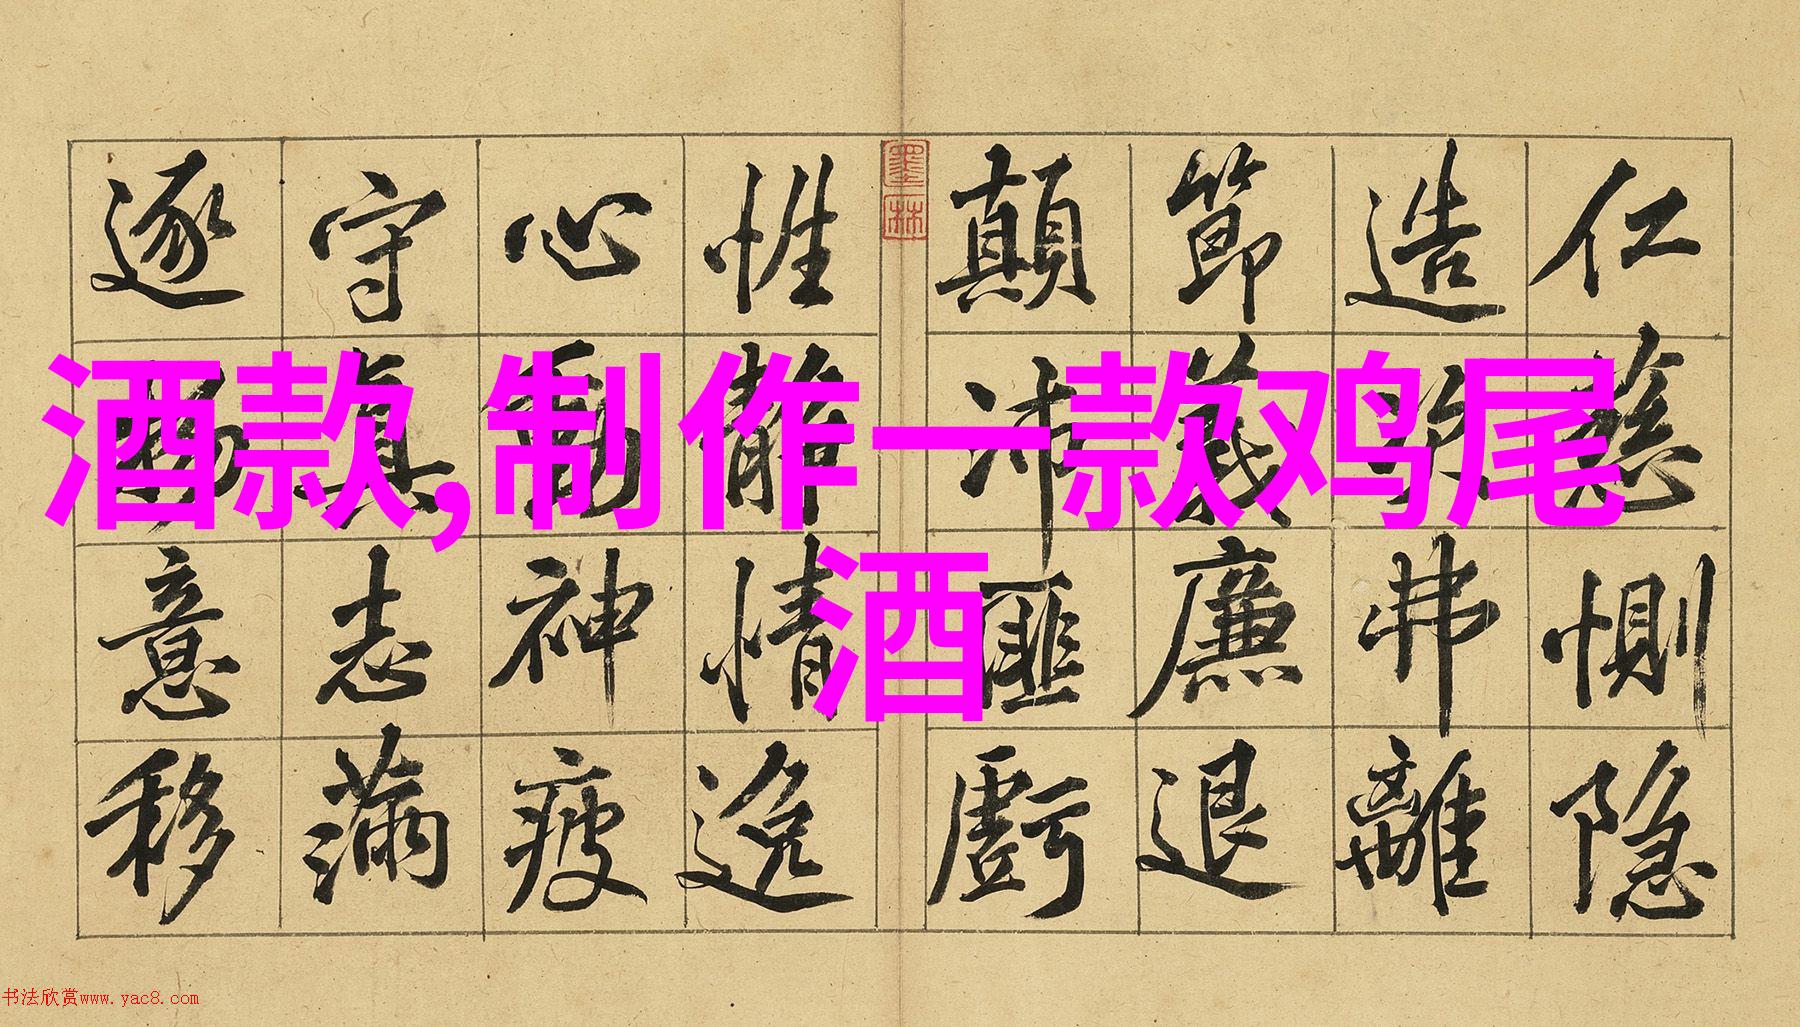 酒款,制作一款鸡尾
酒
仁慈惻隐
造次弗離
節義廉退
顛沛匪虧
墨林
性靜情逸
心動神疲
守真志滿
逐物意移
书法欣赏www.yac8.com